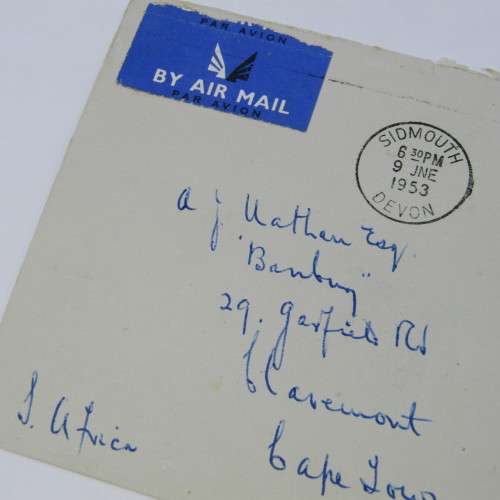 PAR AVION
BY AIR MAIL
PAR AVION
SIDMOUTH
6 30PM
9 JNE
1953
DEVON
A J Nathan Esq.
"Banbury"
29. Garfield Rd
Claremont
Cape Town
S. Africa